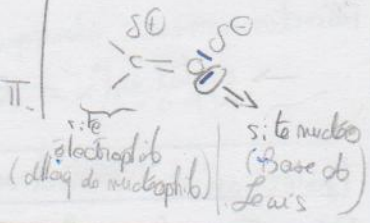 δ⊕ δ⊖
C=O
II.
site
électrophile
(attaq de nucléophile)
site nucléo
(Base de
Lewis)